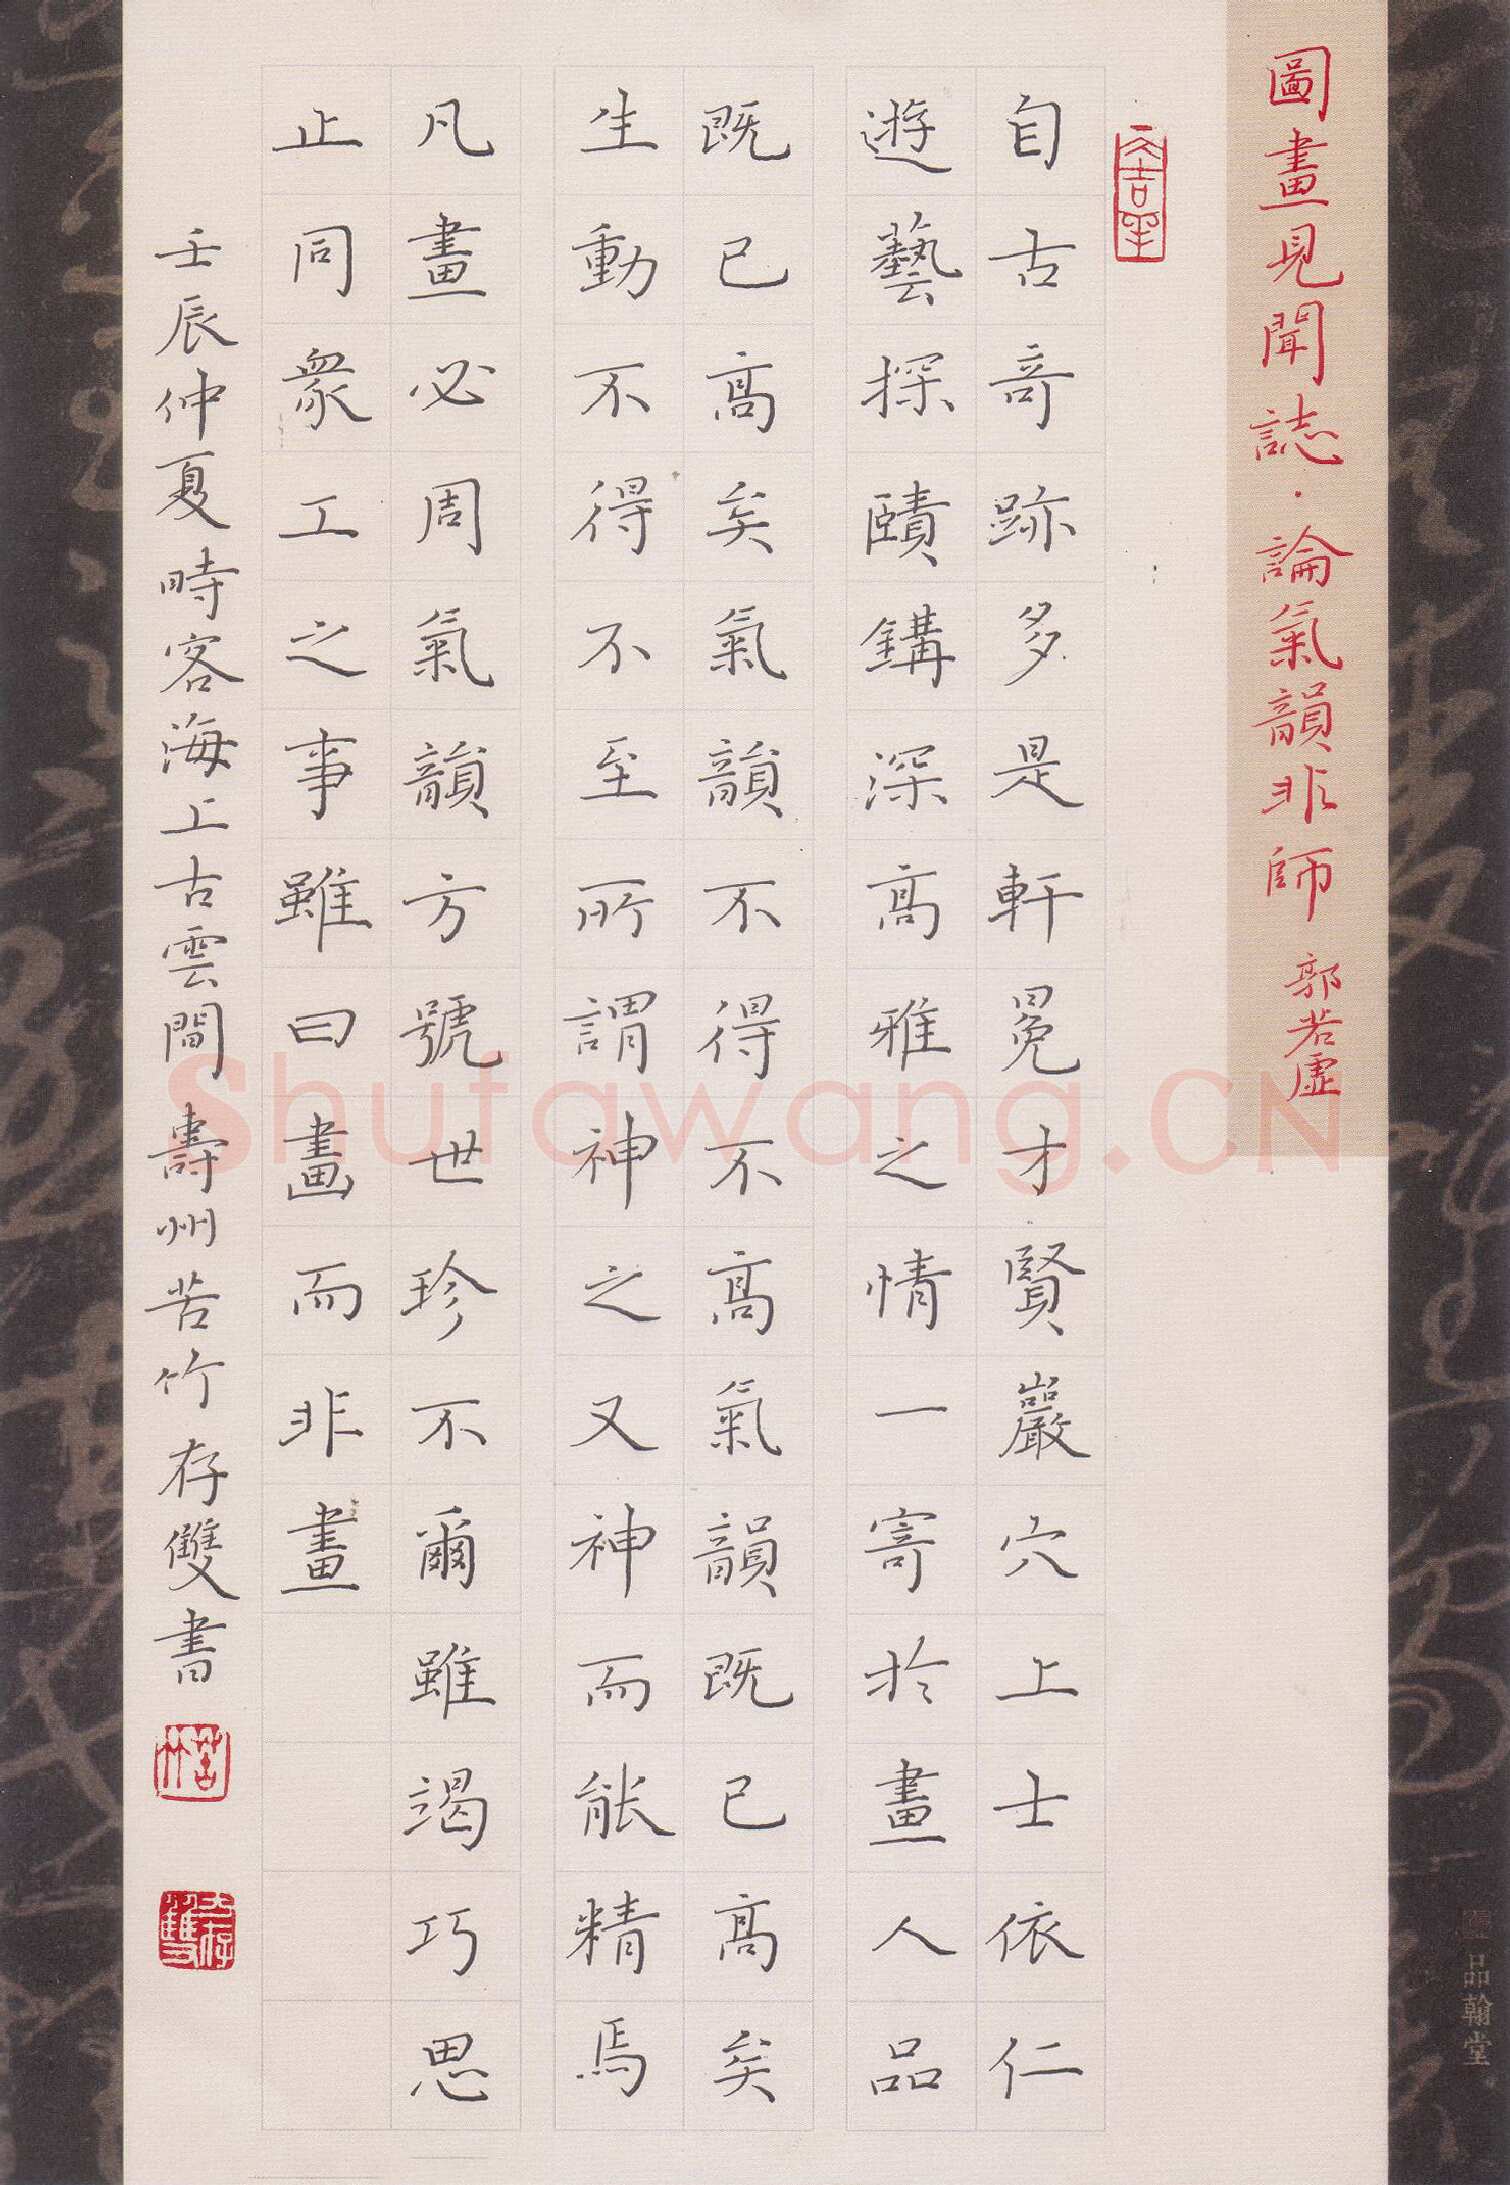 圖畫見聞誌·論氣韻非師 郭若虛
自古奇跡多是軒冕才賢巖穴上士依仁
遊藝探賾鉤深高雅之情一寄於畫人品
既已高矣氣韻不得不高氣韻既已高矣
生動不得不至所謂神之又神而能精焉
凡畫必周氣韻方號世珍不爾雖竭巧思
止同衆工之事雖曰畫而非畫
壬辰仲夏時客海上古雲間壽州苦竹存雙書
苦竹
品翰堂
Shufawang.CN